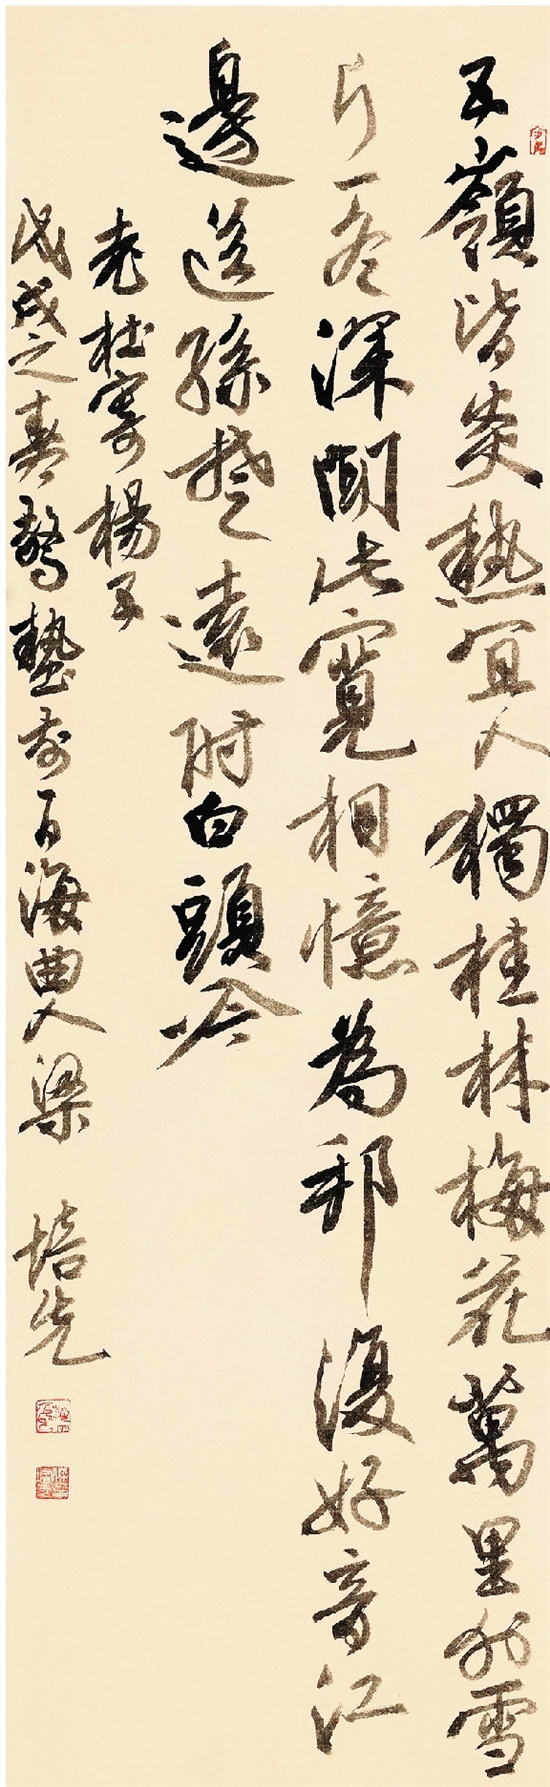 五嶺皆炎熱宜人獨桂林梅花萬里外雪
片一冬深聞此寬相憶為邦復好音江
邊送孫楚遠附白頭吟
老杜寄楊五
戊戌之春驚蟄前日海曲人梁培先